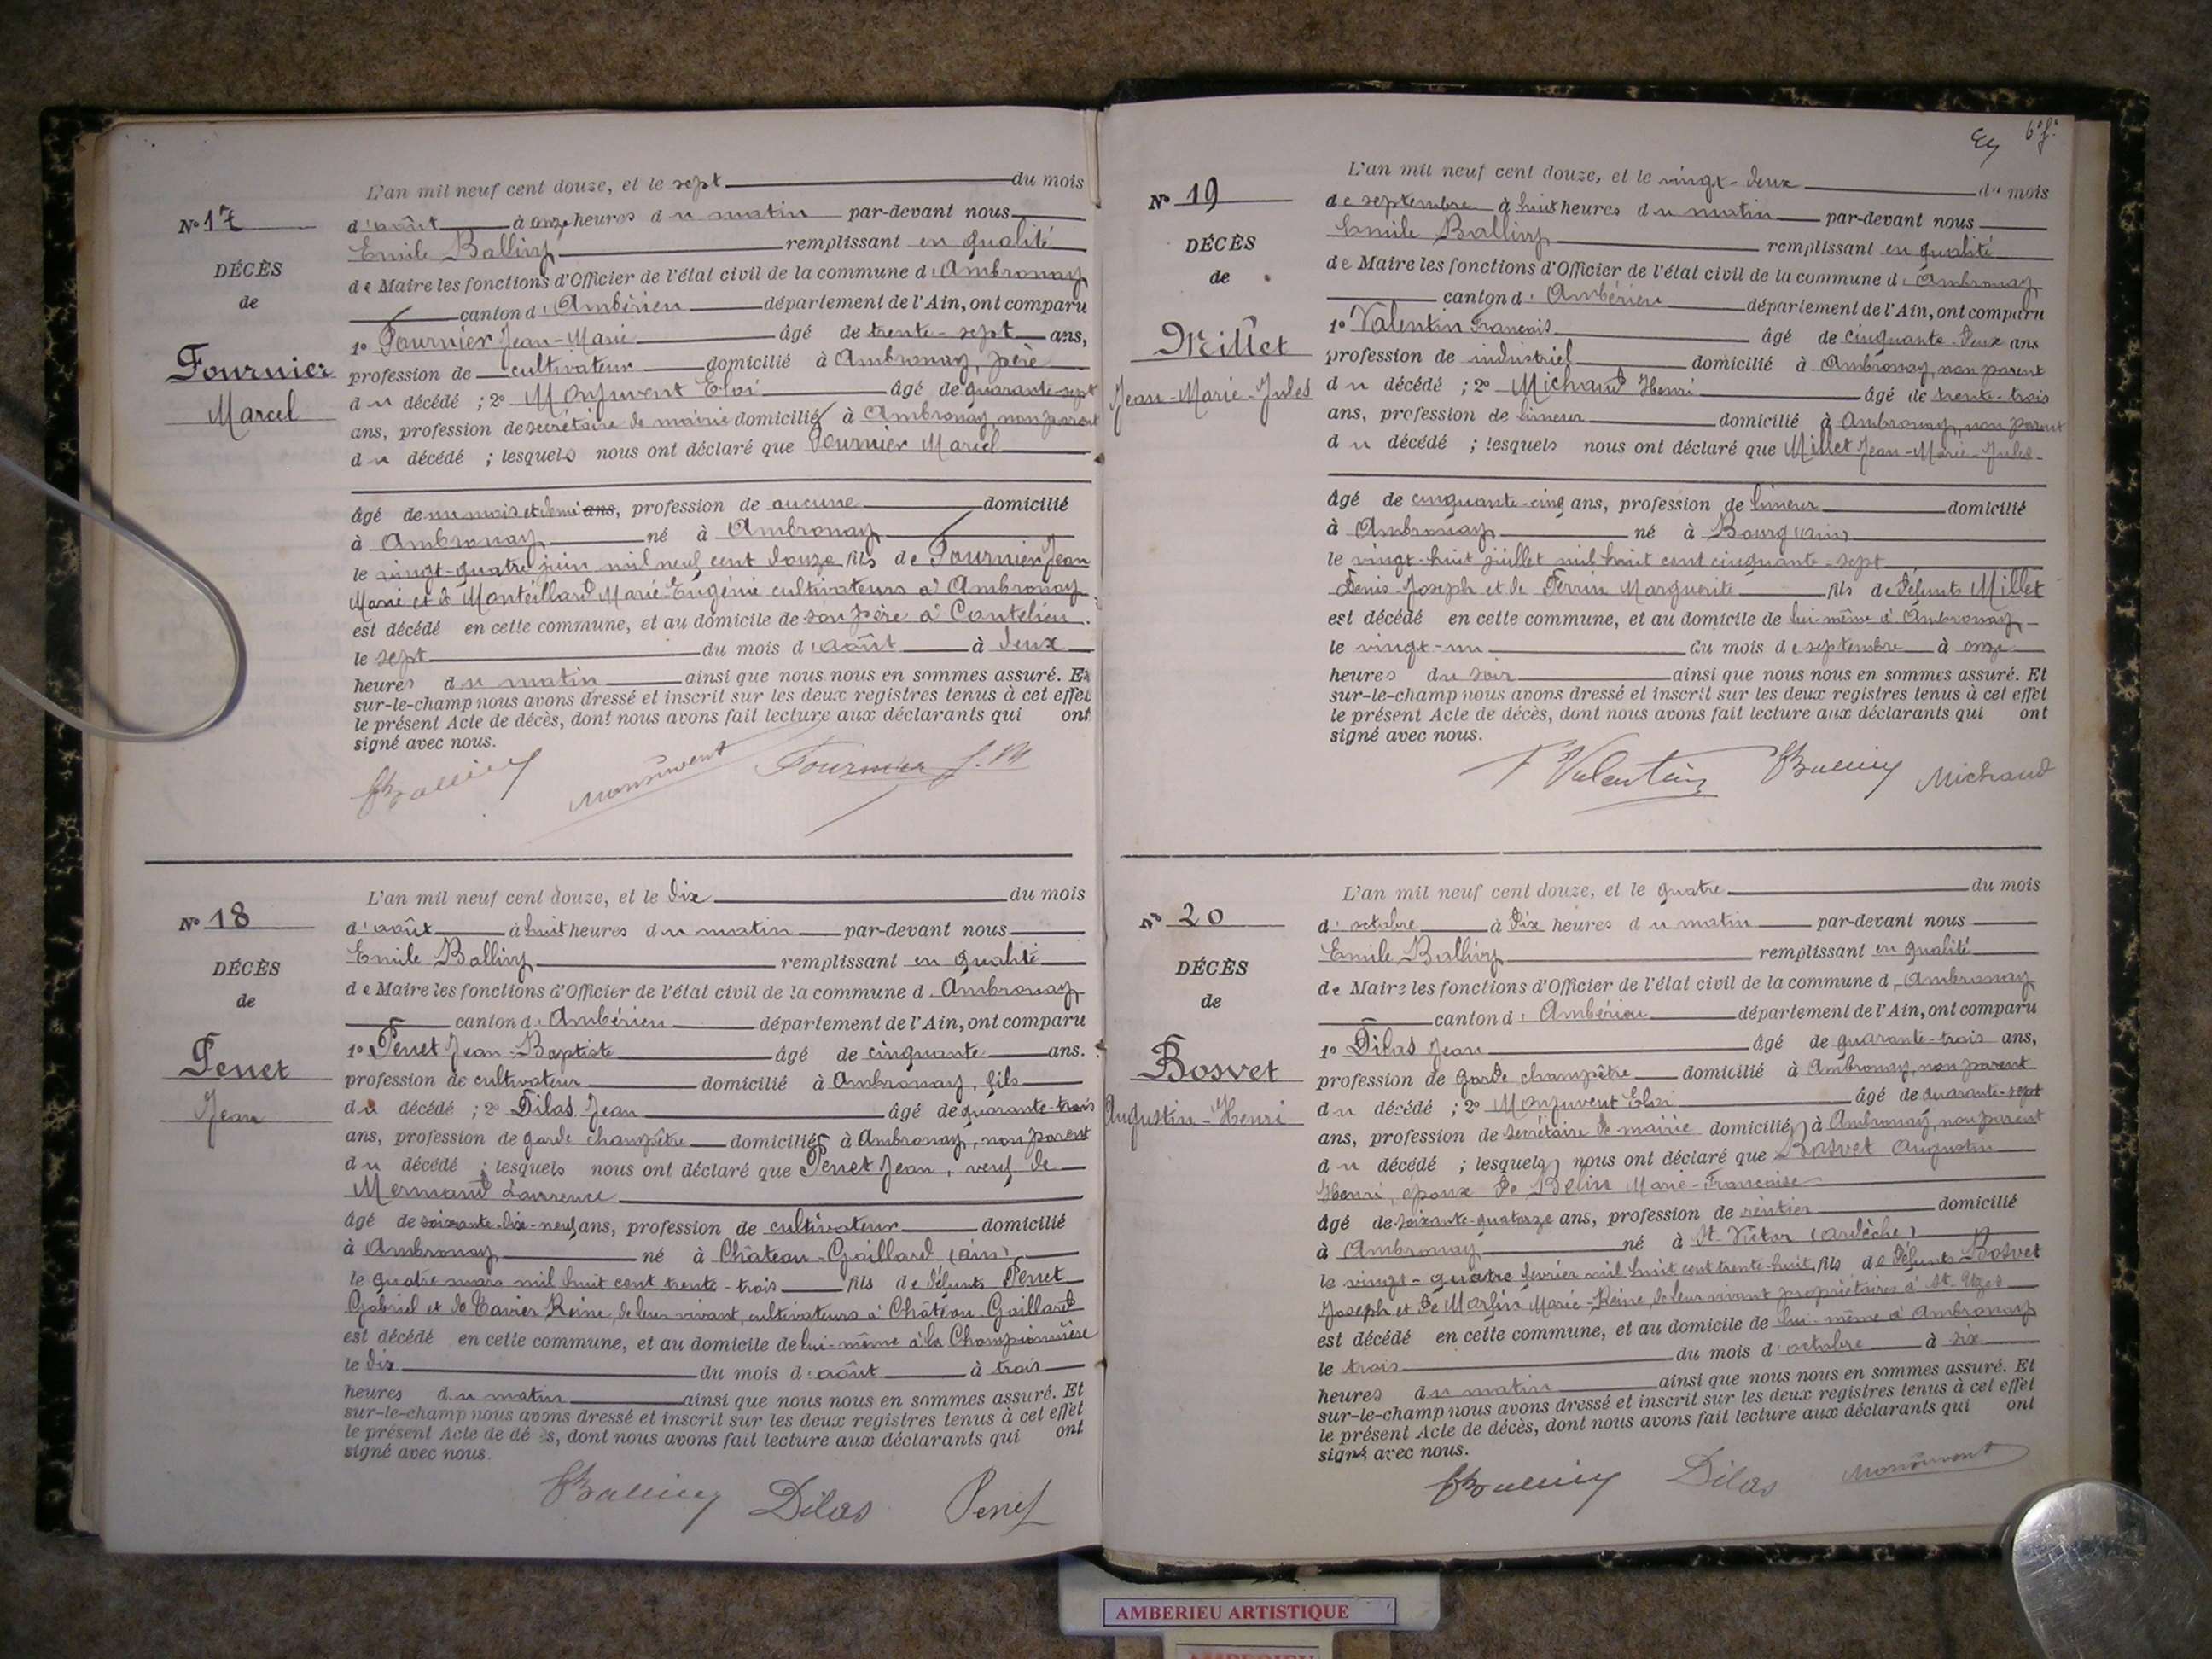 L'an mil neuf cent douze, et le sept du mois
N° 17
d'août à onze heures du matin par-devant nous
Emile Ballivy remplissant en qualité
DÉCÈS
de Maire les fonctions d'Officier de l'état civil de la commune d'Ambronay
de
canton d'Ambérieu département de l'Ain, ont comparu
1° Fournier Jean-Marie âgé de trente-sept ans,
Fournier
profession de cultivateur domicilié à Ambronay, père
Marcel
du décédé ; 2° Monjuvent Eloi âgé de quarante-sept
ans, profession de secrétaire de mairie domiciliés à Ambronay, non parent
du décédé ; lesquels nous ont déclaré que Fournier Marcel
âgé de un mois et demi ans, profession de aucune domicilié
à Ambronay né à Ambronay
le vingt-quatre juin mil neuf cent douze fils de Fournier Jean
Marie et de Monteillard Marie-Eugénie cultivateurs à Ambronay
est décédé en cette commune, et au domicile de son père à Coutelieu
le sept du mois d'août à deux
heures du matin ainsi que nous nous en sommes assuré. Et
sur-le-champ nous avons dressé et inscrit sur les deux registres tenus à cet effet
le présent Acte de décès, dont nous avons fait lecture aux déclarants qui ont
signé avec nous.
Ballivy Monjuvent Fournier J. M
L'an mil neuf cent douze, et le dix du mois
N° 18
d'août à huit heures du matin par-devant nous
Emile Ballivy remplissant en qualité
DÉCÈS
de Maire les fonctions d'Officier de l'état civil de la commune d'Ambronay
de
canton d'Ambérieu département de l'Ain, ont comparu
1° Penet Jean-Baptiste âgé de cinquante ans.
Penet
profession de cultivateur domicilié à Ambronay, fils
Jean
du décédé ; 2° Dilas Jean âgé de quarante-trois
ans, profession de garde champêtre domiciliés à Ambronay, non parent
du décédé ; lesquels nous ont déclaré que Penet Jean, veuf de
Mermand Laurence
âgé de soixante-dix-neuf ans, profession de cultivateur domicilié
à Ambronay né à Château-Gaillard (Ain)
le quatre mars mil huit cent trente-trois fils de défunts Penet
Gabriel et de Tavier Reine, de leur vivant, cultivateurs à Château-Gaillard
est décédé en cette commune, et au domicile de lui-même à la Championnière
le dix du mois d'août à trois
heures du matin ainsi que nous nous en sommes assuré. Et
sur-le-champ nous avons dressé et inscrit sur les deux registres tenus à cet effet
le présent Acte de dé s, dont nous avons fait lecture aux déclarants qui ont
signé avec nous.
Ballivy Dilas Penet
L'an mil neuf cent douze, et le vingt-deux du mois
N° 19
de septembre à huit heures du matin par-devant nous
Emile Ballivy remplissant en qualité
DÉCÈS
de Maire les fonctions d'Officier de l'état civil de la commune d'Ambronay
de
canton d'Ambérieu département de l'Ain, ont comparu
1° Valentin François âgé de cinquante-deux ans
Millet
profession de industriel domicilié à Ambronay, non parent
Jean-Marie-Jules
du décédé ; 2° Michaud Henri âgé de trente-trois
ans, profession de limeur domicilié à Ambronay, non parent
du décédé ; lesquels nous ont déclaré que Millet Jean-Marie-Jules
âgé de cinquante-cinq ans, profession de limeur domicilié
à Ambronay né à Bourg (Ain)
le vingt-huit juillet mil huit cent cinquante-sept
Denis-Joseph et de Perrin Marguerite fils de défunts Millet
est décédé en cette commune, et au domicile de lui-même à Ambronay
le vingt-un du mois de septembre à onze
heures du soir ainsi que nous nous en sommes assuré. Et
sur-le-champ nous avons dressé et inscrit sur les deux registres tenus à cet effet
le présent Acte de décès, dont nous avons fait lecture aux déclarants qui ont
signé avec nous.
F Valentin Ballivy Michaud
L'an mil neuf cent douze, et le quatre du mois
N° 20
d'octobre à dix heures du matin par-devant nous
Emile Ballivy remplissant en qualité
DÉCÈS
de Maire les fonctions d'Officier de l'état civil de la commune d'Ambronay
de
canton d'Ambérieu département de l'Ain, ont comparu
1° Dilas Jean âgé de quarante-trois ans,
Bosvet
profession de garde champêtre domicilié à Ambronay, non parent
Augustin-Henri
du décédé ; 2° Monjuvent Eloi âgé de quarante-sept
ans, profession de secrétaire de mairie domiciliés à Ambronay, non parent
du décédé ; lesquels nous ont déclaré que Bosvet Augustin
Henri, époux de Belin Marie-Françoise
âgé de soixante-quatorze ans, profession de rentier domicilié
à Ambronay né à St-Victor (Ardèche)
le vingt-quatre février mil huit cent trente-huit, fils de défunts Bosvet
Joseph et de Marfin Marie-Reine, de leur vivant propriétaires à St-Uzes
est décédé en cette commune, et au domicile de lui-même à Ambronay
le trois du mois d'octobre à six
heures du matin ainsi que nous nous en sommes assuré. Et
sur-le-champ nous avons dressé et inscrit sur les deux registres tenus à cet effet
le présent Acte de décès, dont nous avons fait lecture aux déclarants qui ont
signé avec nous.
Ballivy Dilas Monjuvent
AMBERIEU ARTISTIQUE
AMBERIEU